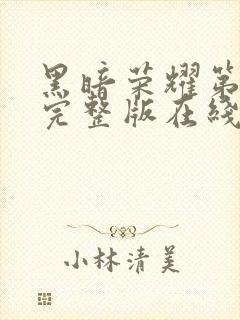 黑暗荣耀第
完整版在线
小林清美